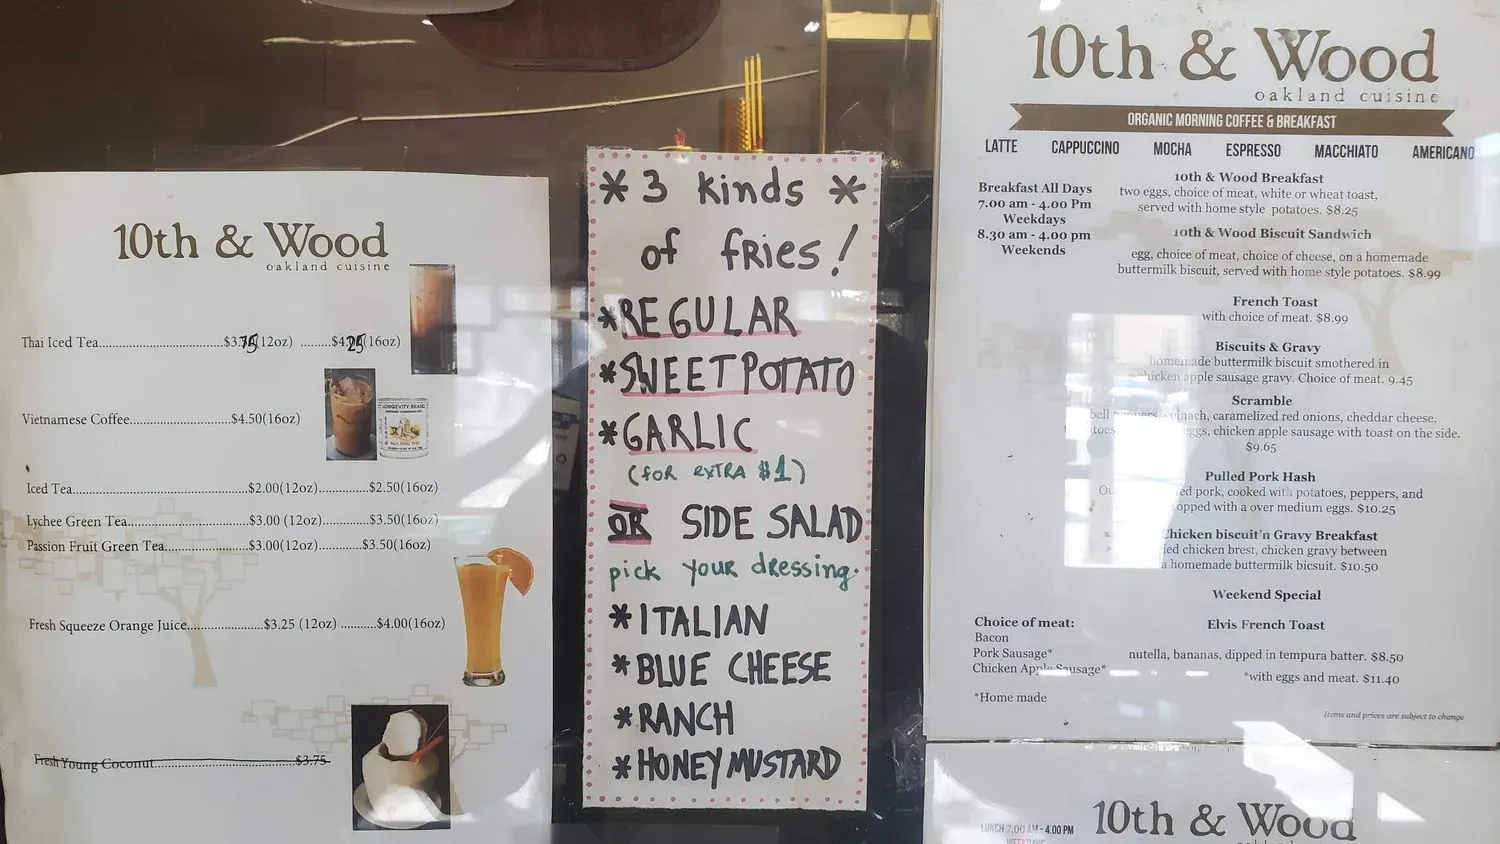 10th & Wood
oakland cuisine
Thai Iced Tea..............................$3.75(12oz) ........$4.25(16oz)
Vietnamese Coffee.........................$4.50(16oz)
LONGEVITY BRAND
Iced Tea...........................................$2.00(12oz)............$2.50(16oz)
Lychee Green Tea..............................$3.00 (12oz)...........$3.50(16oz)
Passion Fruit Green Tea.....................$3.00(12oz)............$3.50(16oz)
Fresh Squeeze Orange Juice...................$3.25 (12oz) ..........$4.00(16oz)
Fresh Young Coconut...................................$3.75
* 3 kinds *
of fries!
*REGULAR
*SWEET POTATO
*GARLIC
(for extra $1)
OR SIDE SALAD
pick your dressing:
*ITALIAN
*BLUE CHEESE
*RANCH
*HONEY MUSTARD
10th & Wood
oakland cuisine
ORGANIC MORNING COFFEE & BREAKFAST
LATTE CAPPUCCINO MOCHA ESPRESSO MACCHIATO AMERICANO
Breakfast All Days
7.00 am - 4.00 Pm
Weekdays
8.30 am - 4.00 pm
Weekends
10th & Wood Breakfast
two eggs, choice of meat, white or wheat toast,
served with home style potatoes. $8.25
10th & Wood Biscuit Sandwich
egg, choice of meat, choice of cheese, on a homemade
buttermilk biscuit, served with home style potatoes. $8.99
French Toast
with choice of meat. $8.99
Biscuits & Gravy
homemade buttermilk biscuit smothered in
chicken apple sausage gravy. Choice of meat. 9.45
Scramble
bell peppers, spinach, caramelized red onions, cheddar cheese,
eggs, chicken apple sausage with toast on the side.
$9.65
Pulled Pork Hash
pork, cooked with potatoes, peppers, and
topped with a over medium eggs. $10.25
Chicken biscuit'n Gravy Breakfast
chicken brest, chicken gravy between
a homemade buttermilk bicsuit. $10.50
Weekend Special
Elvis French Toast
nutella, bananas, dipped in tempura batter. $8.50
*with eggs and meat. $11.40
Choice of meat:
Bacon
Pork Sausage*
Chicken Apple Sausage*
*Home made
Items and prices are subject to change
LUNCH 7.00 AM - 4.00 PM
WEEKDAYS
10th & Wood